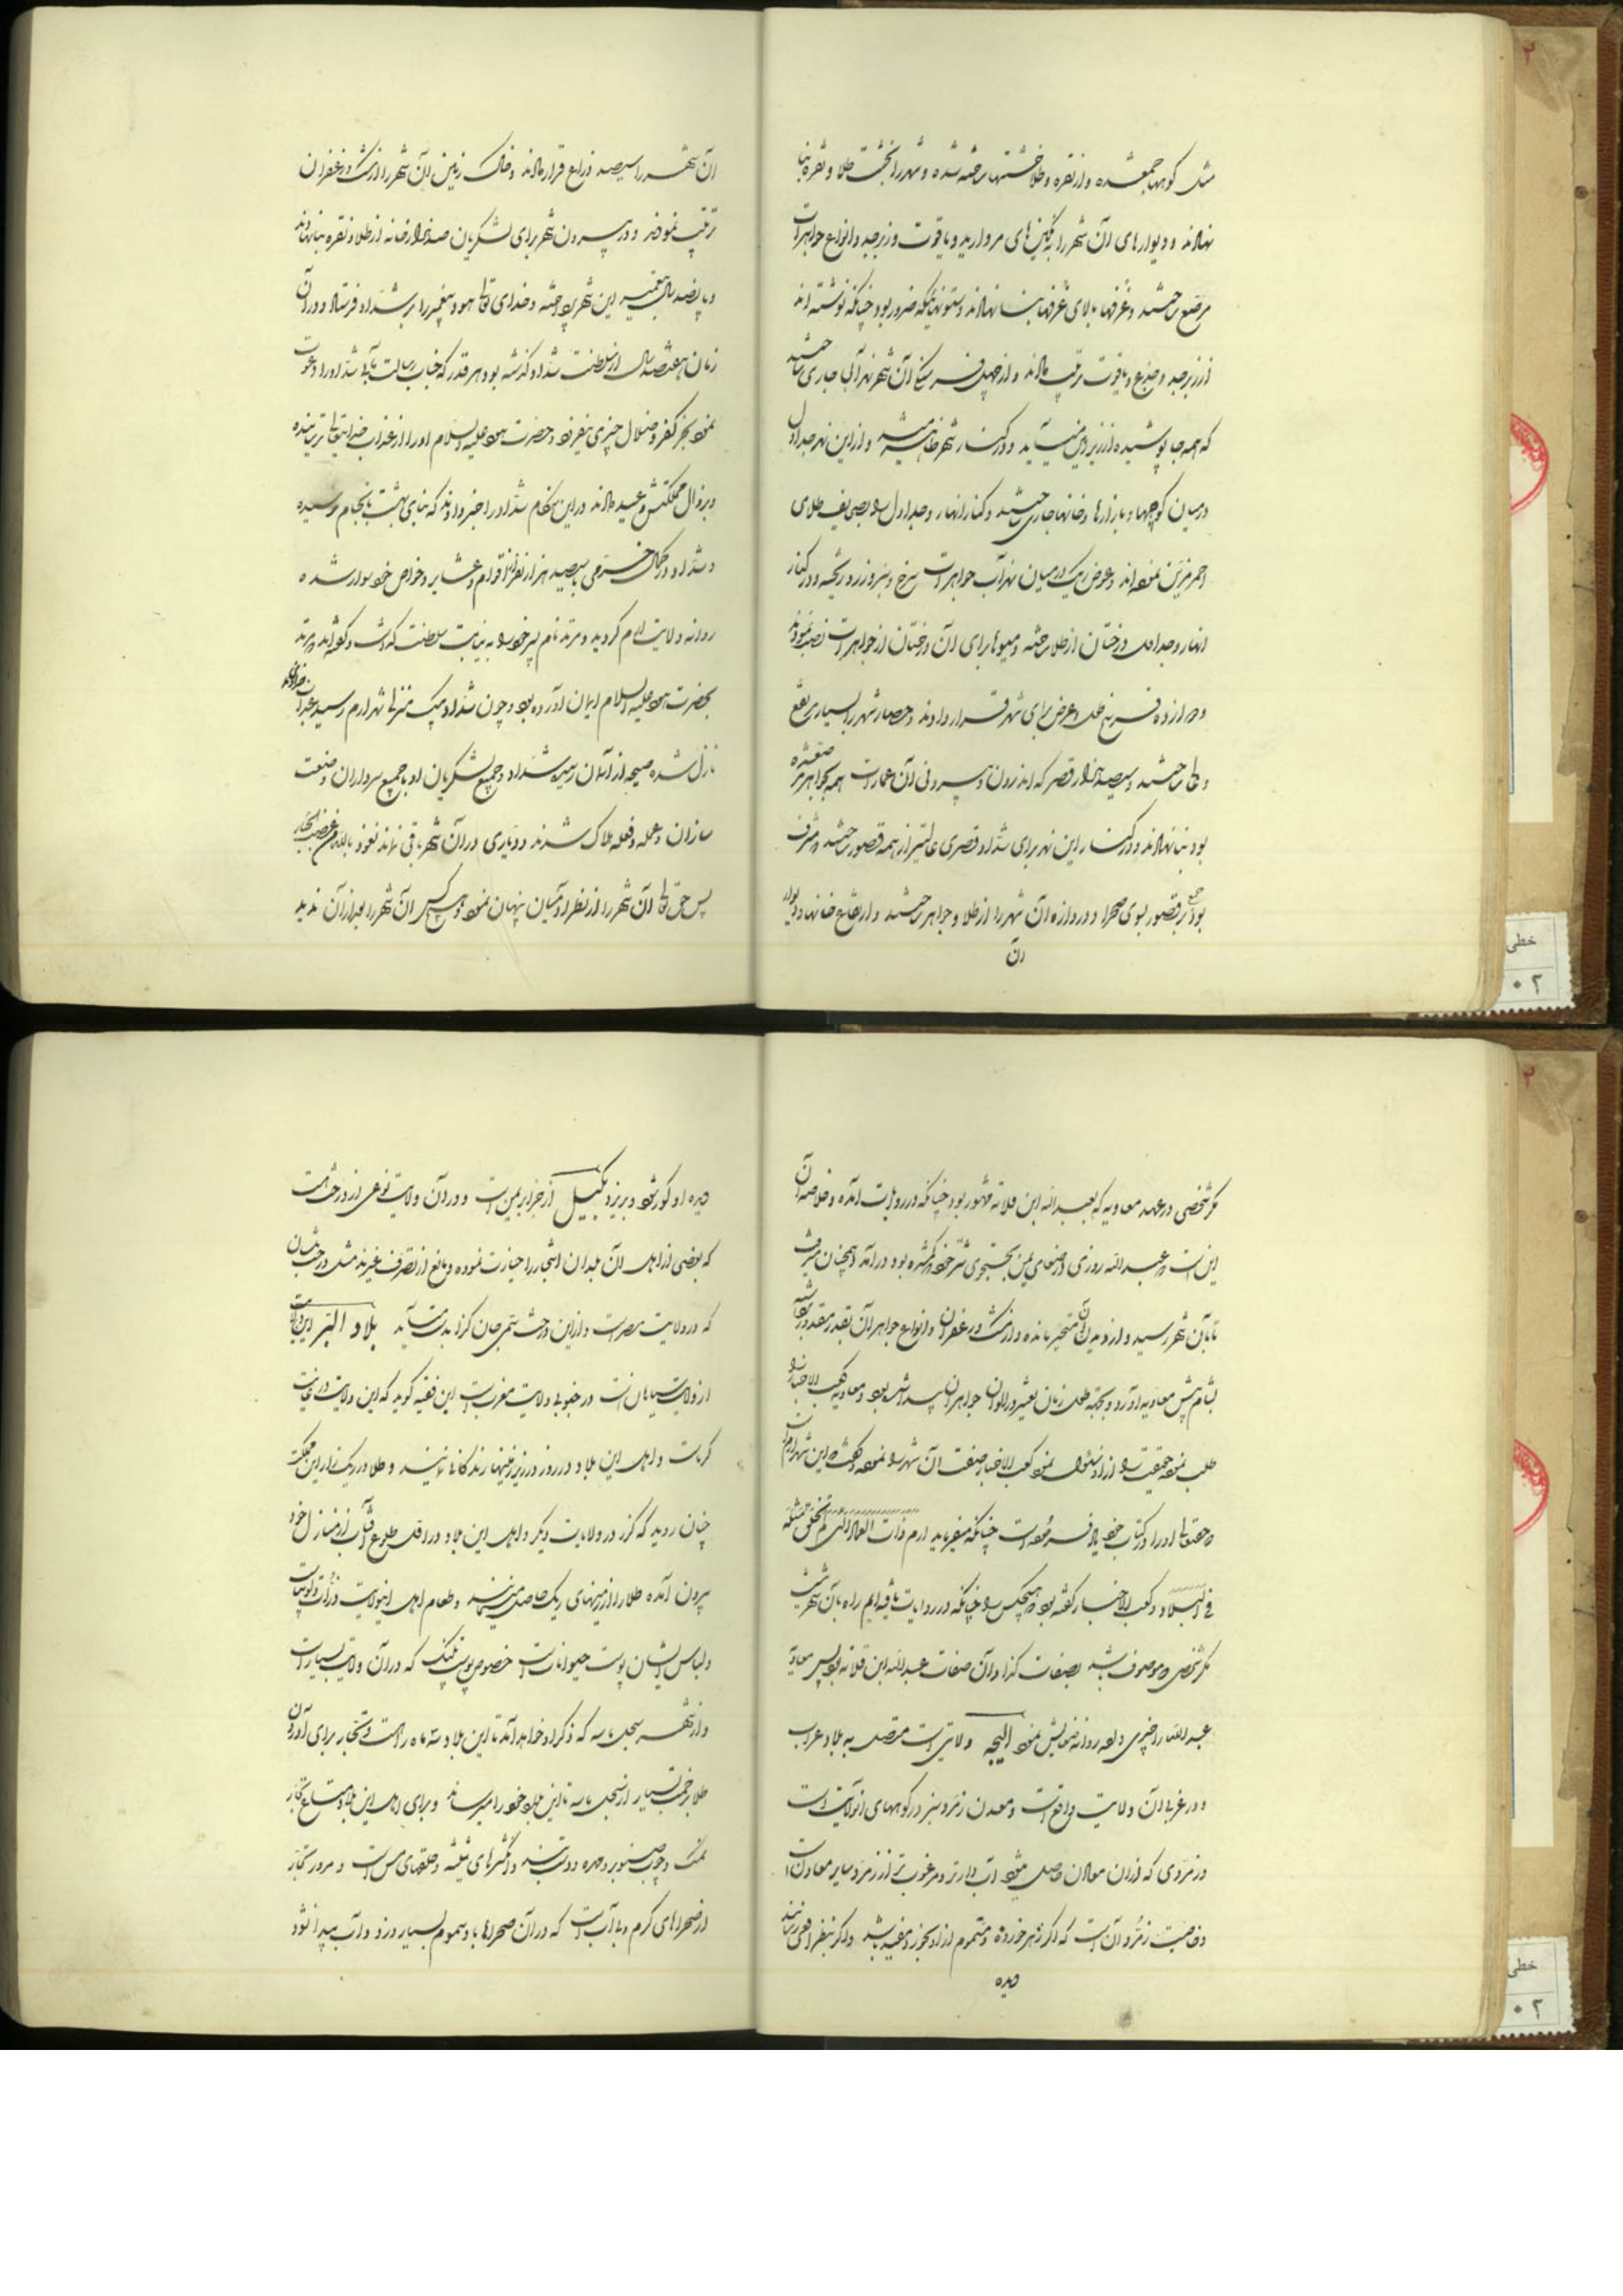 مثل کوهها جمع شده و از نقره و طلا خشتها ساخته شده و شهر را بخشت طلا و نقره بنا
نهادند و دیوارهای آن شهر را به نگین های مروارید و یاقوت و زبرجد و انواع جواهرات
مرصع ساختند و غرفها بالای غرفها بنا نهادند و ستونهائیکه ضرور بود چنانکه نوشته اند
از زبرجد و جزع و یاقوت ترتیب دادند و از چهل فرسخ آن شهر نهر آب جاری ساختند
که همه جا پوشیده از زیر زمین میآید و در کنار شهر ظاهر میشد و از این نهر جداول
در میان کوچها و بازارها و خانها جاری ساختند و کنار انهار و جداول را بصحایف طلای
احمر مزین نموده اند و عوض ریک در میان نهر آب جواهرات سرخ و سبز و زرد ریخته و در کنار
انهار و جداول درختان از طلا ساخته و میوها برای آن درختان از جواهرات نصب نمودند
و دوازده فرسخ طول و عرض برای شهر قرار دادند و حصار شهر را بسیار مرتفع
و عالی ساختند و سیصد هزار قصر که اندرون و بیرونی آن عمارت همه بجواهر مرصع شده
بود بنا نهادند و در کنار این نهر برای شداد قصری عالیتر از همه قصور ساختند و مشرف
بود بر جمیع قصور بسوی صحرا و دروازه آن شهر را از طلا و جواهر ساختند و ارتفاع خانها و دیوار
آن
آن شهر را سیصد ذراع قرار دادند و خاک زمین آن شهر را از مشک و زعفران
ترتیب نمودند و در بیرون شهر برای لشکریان صد هزار خانه از طلا و نقره بنا نهادند
و پانصد سال بتعمیر این شهر پرداخته و خدای تعالی هود پیغمبر را بر شداد فرستاد و در آن
زمان هفتصد سال از سلطنت شداد گذشته بود هر قدر که جناب رسالت مآب شداد را دعوت
نمود بجز کفر و ضلال چیزی نیفزود و حضرت هود علیه السلام او را از عذاب خدایتعالی ترسانیده
و بزوال مملکتش وعید دادند در این هنگام شداد را خبر دادند که بنای بهشت بانجام رسیده
و شداد در کمال خرمی با سیصد هزار نفر از اقوام و عشایر و خواص خود سوار شده
روانه ولایت ارم گردید و مرثد نام پسر خود را به نیابت سلطنت گذاشت و گفته اند مرثد
بحضرت هود علیه السلام ایمان آورده بود و چون شداد بیک منزل شهر ارم رسید عذاب خداوندی
نازل شده صیحه از آسمان رسید شداد و جمیع لشکریان او با جمیع سرداران و صنعت
سازان و عمله و فعله هلاک شدند و دیاری در آن شهر باقی نماند نعوذ بالله من غضب الجبار
پس حق تعالی آن شهر را از نظر آدمیان پنهان نمود و هیچ کس آن شهر را بعد از آن ندید
مگر شخصی در عهد معاویه که بعبد الله ابن قلابه مشهور بود چنانکه در روایات آمده و خلاصه آن
این است عبد الله روزی در صحرای یمن بجستجوی شتر خود که گم شده بود در آمد و همچنان میرفت
تا بآن شهر رسید و از دیدن آن متحیر مانده و از مشک و زعفران و انواع جواهر آن بقدر مقدور برداشته
بشام پیش معاویه آورد و بجهة طول زمان تغییر در الوان جواهر آن پیدا شده بود و معاویه کعب الاحبار را
طلب نموده حقیقت را از او سئوال نمود کعب الاحبار صفت آن شهر را نموده و گفت این شهر ارم است
و حقتعالی او را در کتاب خود یاد فرموده است چنانکه میفرماید ارم ذات العماد التی لم یخلق مثلها
فی البلاد و کعب الاحبار گفته بود هیچکس را چنانکه در روایات یافته ایم راه بآن شهر نیست
مگر شخصی که موصوف باشد بصفات کذا و آن صفات عبد الله ابن قلابه بود پس معاویه
عبد الله را چیزی داده روانه منزلش نمود البجه ولایتی است متصل به بلاد اعراب
و در غربی آن ولایت واقع است و معدن زمرد سبز در کوههای آن ولایت است
و زمردی که از آن معادن حاصل میشود آب دارتر و مرغوب تر از زمرد سایر معادن است
و خاصیت زمرد آن است که اگر زهر خورده و مسموم از او بخورد مفید باشد و اگر بنظر افعی رسانند
دیده
دیده او کور شود و بریزد بکیل از جزایر یمن است و در آن ولایت نوعی از درخت است
که بعضی از اهل آن بلدان اشجار را حیازت نموده و مانع از تصرف غیرند مثل درخت بلسان
که در ولایت مصر است و از این درخت سمی جان گزا بدست میآید بلاد التبر این ولایت
از ولایت سیاهان است در جنوبی ولایت مغرب است ابن فقیه گوید که این ولایت در غایت
گرمی است و اهل این بلاد در روز در زیر زمینها زندگانی نمایند و طلا در ریگزار این مملکت
چنان روید که گزر در ولایات دیگر و اهل این بلاد در اول طلوع آفتاب از منازل خود
بیرون آمده طلا را از زمینهای ریگ حاصل مینمایند و طعام اهل اینولایت ذرت و لوبیاست
و لباس ایشان پوست حیوانات است خصوص پوست پلنگ که در آن ولایت بسیار است
و از شهر سجلماسه که ذکر او خواهد آمد تا این بلاد سه ماه راه است و تجار برای آوردن
طلا بزحمت بسیار از سجلماسه تا این بلاد خود را میرسانند و برای اهل این بلاد متاع تجار
نمک و چوب صنوبر و مهره و دست بند و انگشترهای شیشه و حلقهای مس است و مرور تجار
از صحراهای گرم و بی آب است که در آن صحراها باد سموم بسیار وزد و آب پیدا نشود
خطی
۰۲
خطی
۰۲